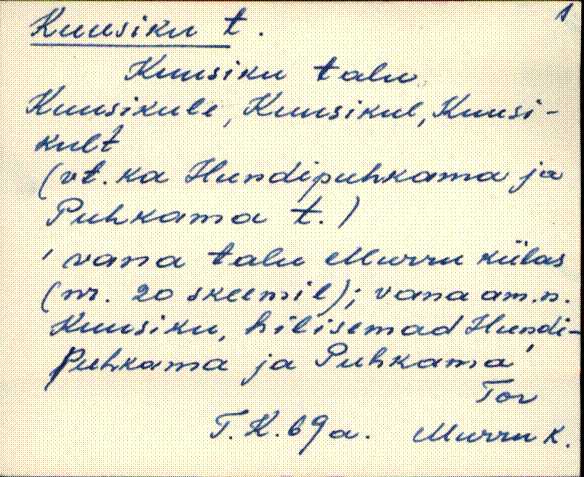 1
Kuusiku t.
Kuusiku talu
Kuusikule, Kuusikul, Kuusi-
kult
(vt. ka Hundipuhkama ja
Puhkama t.)
' vana talu Murru külas
(nr. 20 skeemil); vana am.n.
Kuusiku, hilisemad Hundi-
puhkama ja Puhkama '
Tor
T.K. 69 a. Murru k.